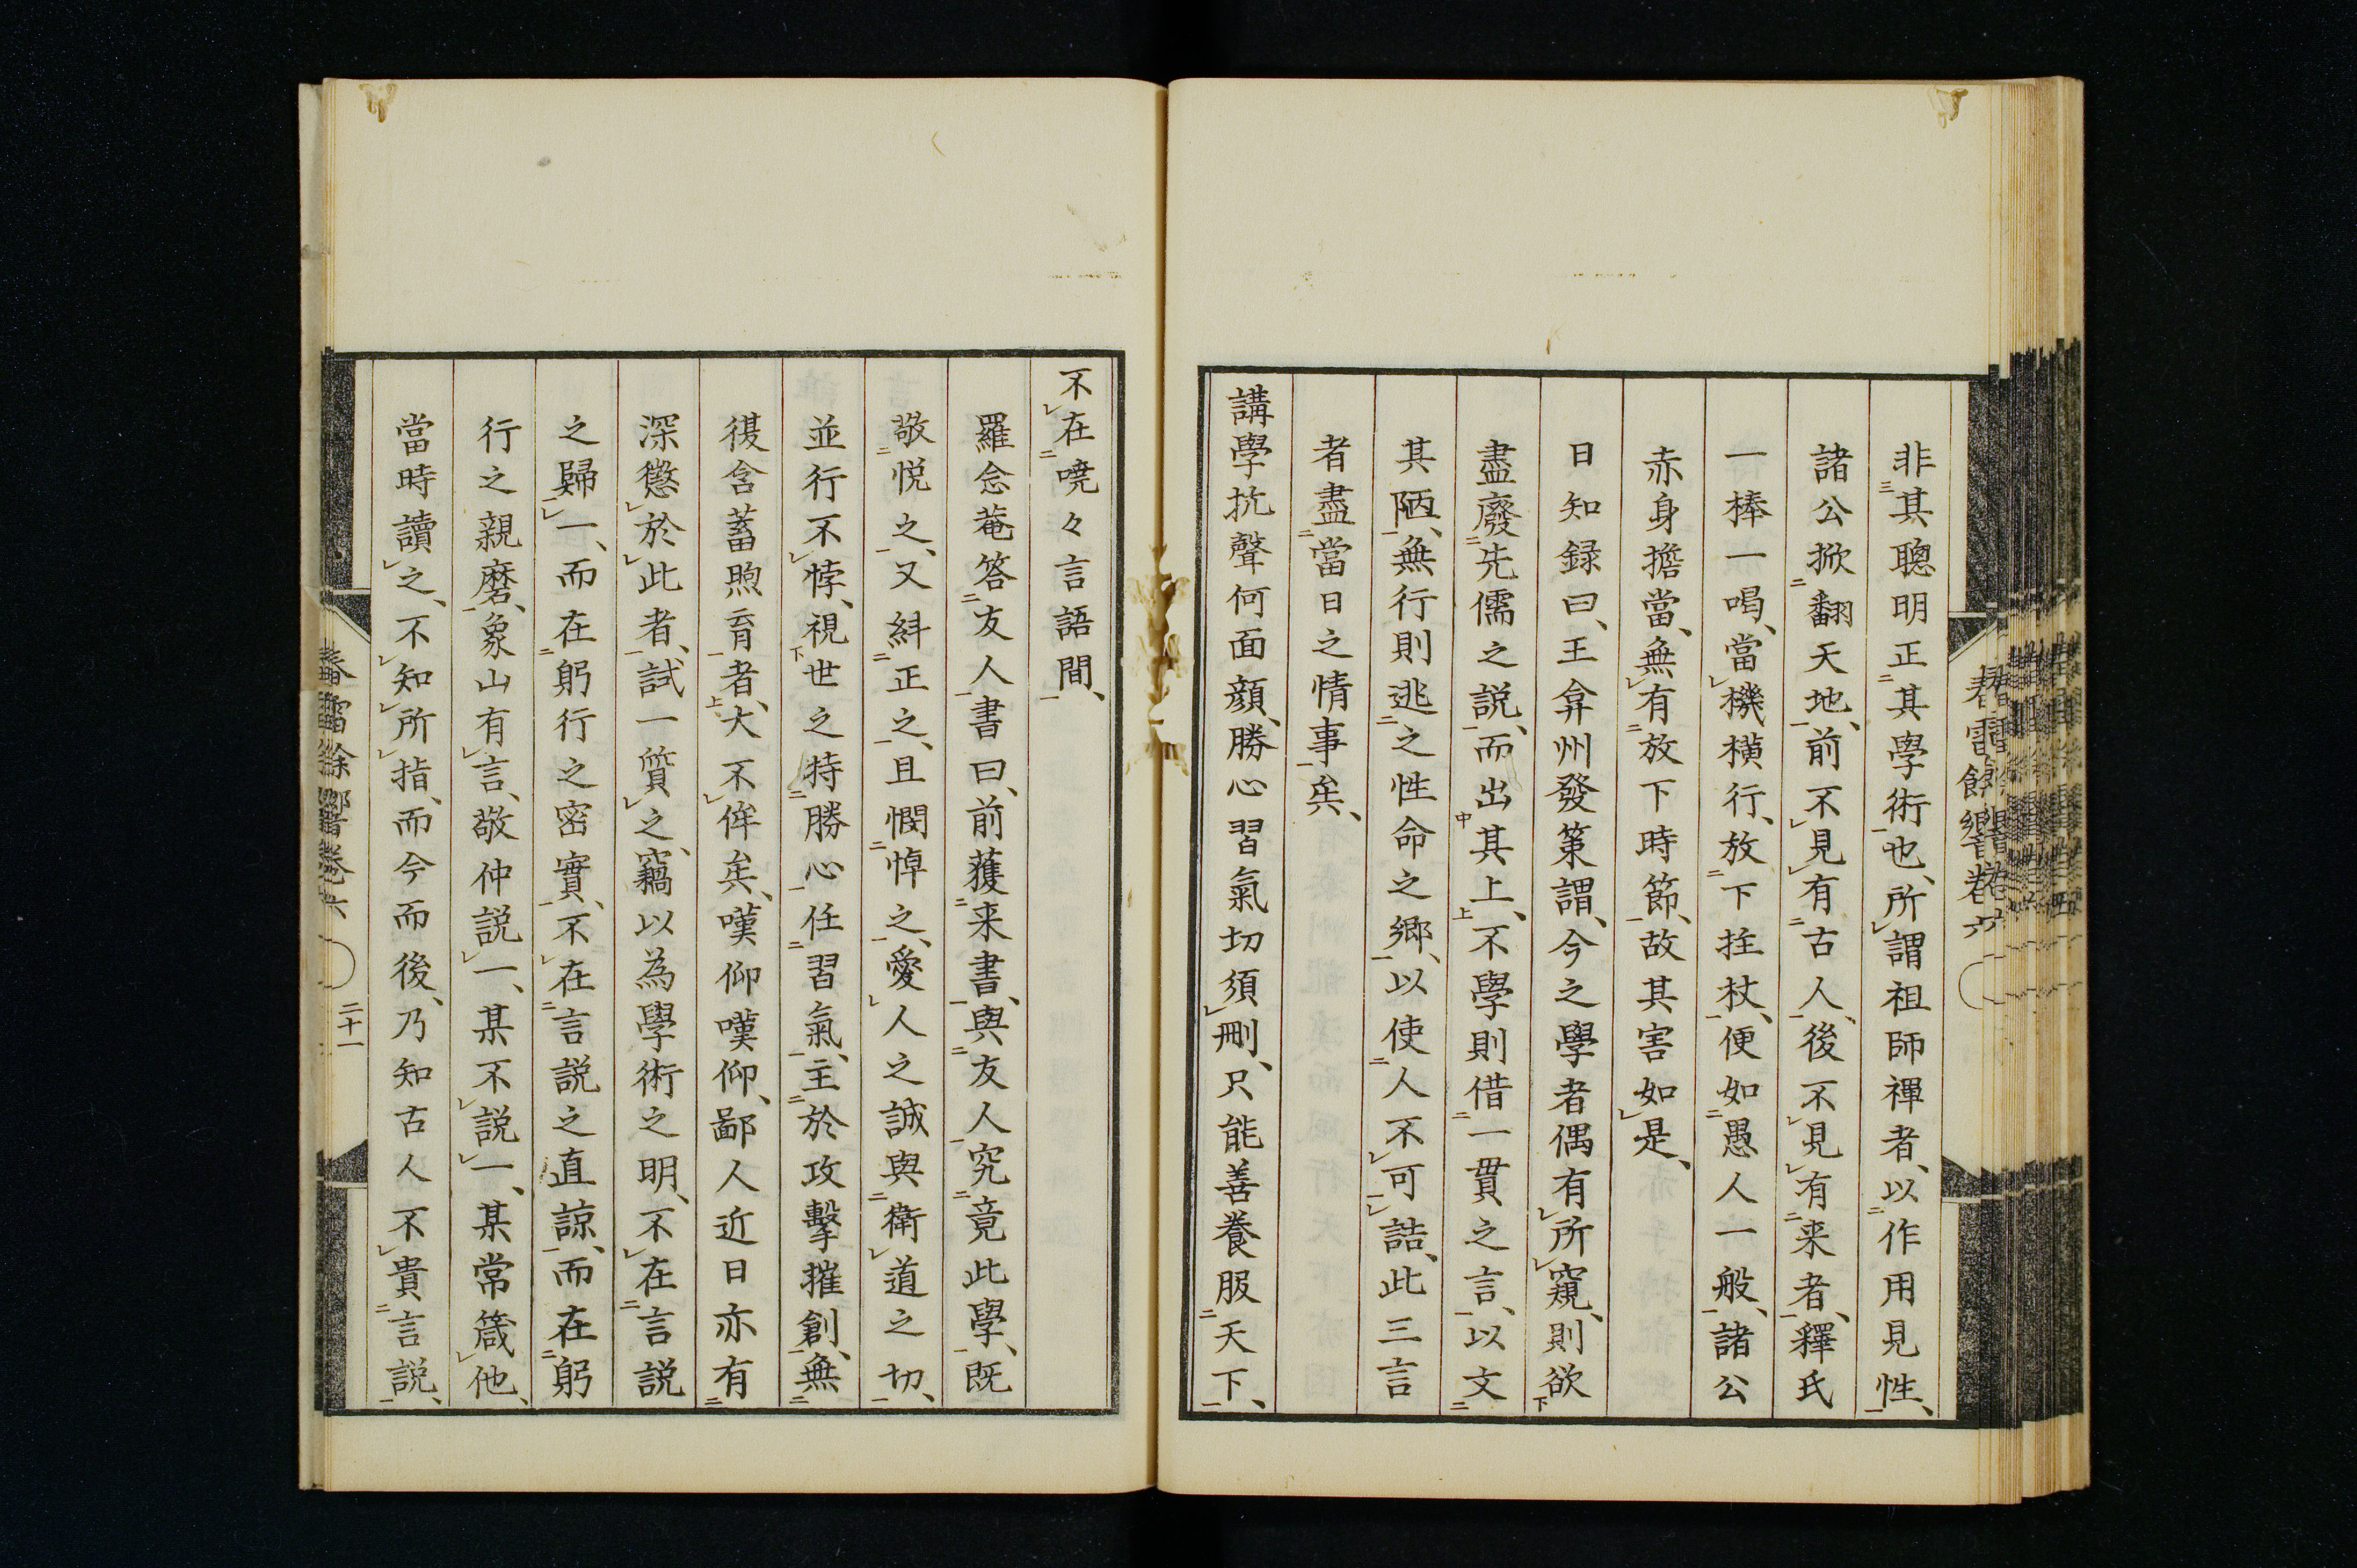 非其聰明正其學術也、所謂祖師禪者、以作用見性、
諸公掀翻天地、前不見有古人、後不見有来者、釋氏
一棒一喝、當機横行、放下拄杖、便如愚人一般、諸公
赤身擔當、無有放下時節、故其害如是、
日知録曰、王弇州發策謂、今之學者偶有所窺、則欲
盡廢先儒之説、而出其上、不學則借一貫之言、以文
其陋、無行則逃之性命之郷、以使人不可詰、此三言
者盡當日之情事矣、
講學抗聲何面顔、勝心習氣切須刪、只能善養服天下、
春雷餘響卷六
不在嘵々言語間、
羅念菴答友人書曰、前獲来書、與友人究竟此學、既
敬悦之、又糾正之、且憫悼之、愛人之誠與衛道之切、
並行不悖、視世之持勝心任習氣、主於攻擊摧創、無
復含蓄煦育者、大不侔矣、嘆仰嘆仰、鄙人近日亦有
深懲於此者、試一質之、竊以為學術之明、不在言説
之歸一、而在躬行之密實、不在言説之直諒、而在躬
行之親磨、象山有言、敬仲説一、某不説一、某常箴他、
當時讀之、不知所指、而今而後、乃知古人不貴言説、
春雷餘響卷六
二十一